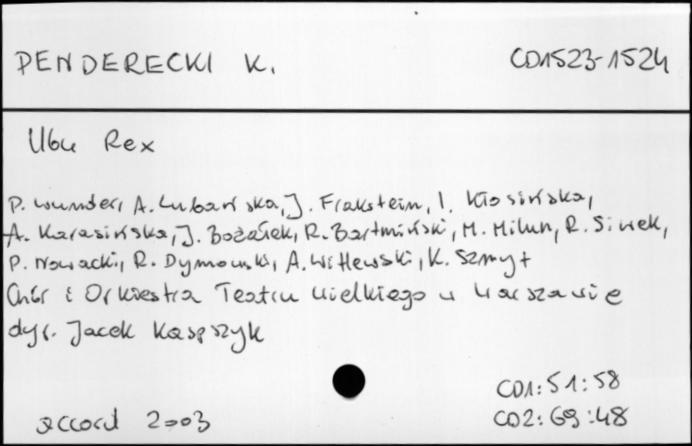 PENDERECKI K. CD1523-1524
Ubu Rex
P. Wunder, A. Lubańska, J. Frakstein, I. Kłosińska,
A. Karasińska, J. Bożatek, R. Bartmiński, M. Milun, R. Siwek,
P. Nowacki, R. Dymowski, A. Witlewski, K. Szmyt
Chór i Orkiestra Teatru Wielkiego w Warszawie
dyr. Jacek Kaspszyk
CD1: 51:58
accord 2003 CD2: 69:48